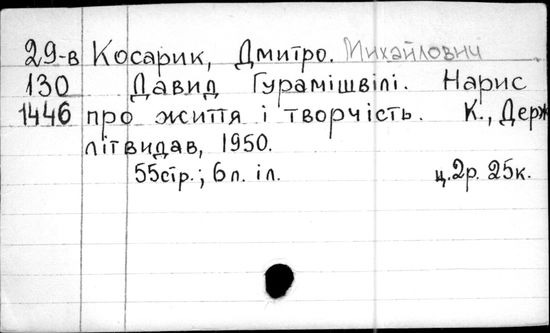 29-в Косарик, Дмитро. Михайлович
130 Давид Гурамішвілі. Нарис
1446 про життя і творчість. К., Держ
літвидав, 1950.
55стр.; 6л. іл. ц. 2р. 25к.